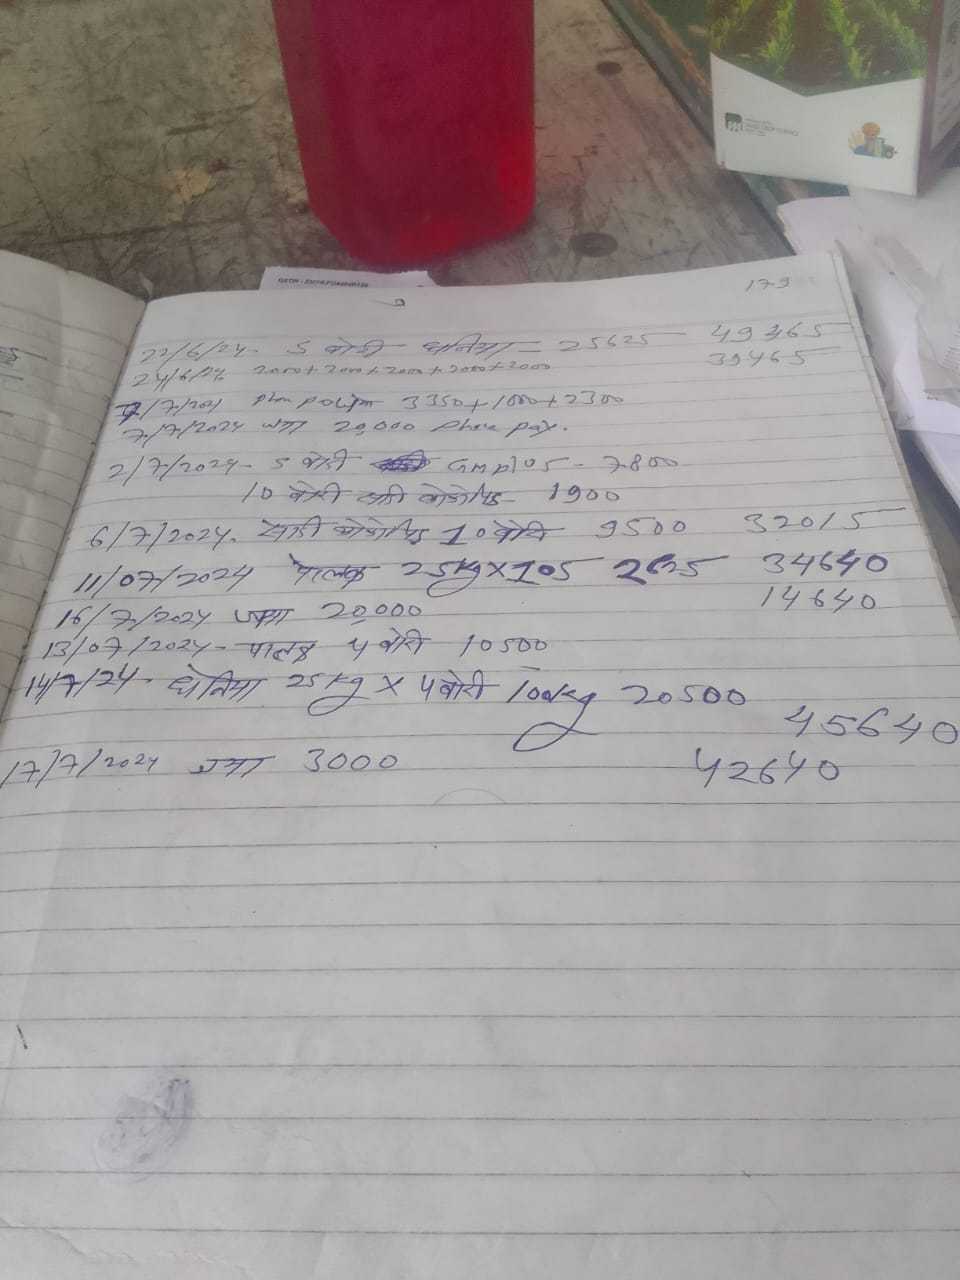 179
22/6/24- 5 बोरी धनिया = 25625 49465
24/6/24 2000+2000+2000+2000+2000 39465
/7/2024 3350+1000+2300
7/7/2024 जमा 20,000 phone pay.
2/7/2024- 5 बोरी Gmplus - 7800
10 बोरी 1900
6/7/2024- 10 बोरी 9500 32015
11/07/2024 पालक 25kg×105 2625 34640
16/7/2024 जमा 20,000 14640
13/07/2024- पालक 4 बोरी 10500
14/7/24- धनिया 25kg × 4 बोरी 100kg 20500
45640
17/7/2024 जमा 3000 42640